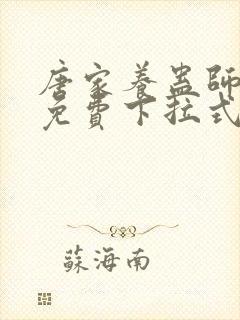 唐家養蠱師
免費下拉式
蘇海南